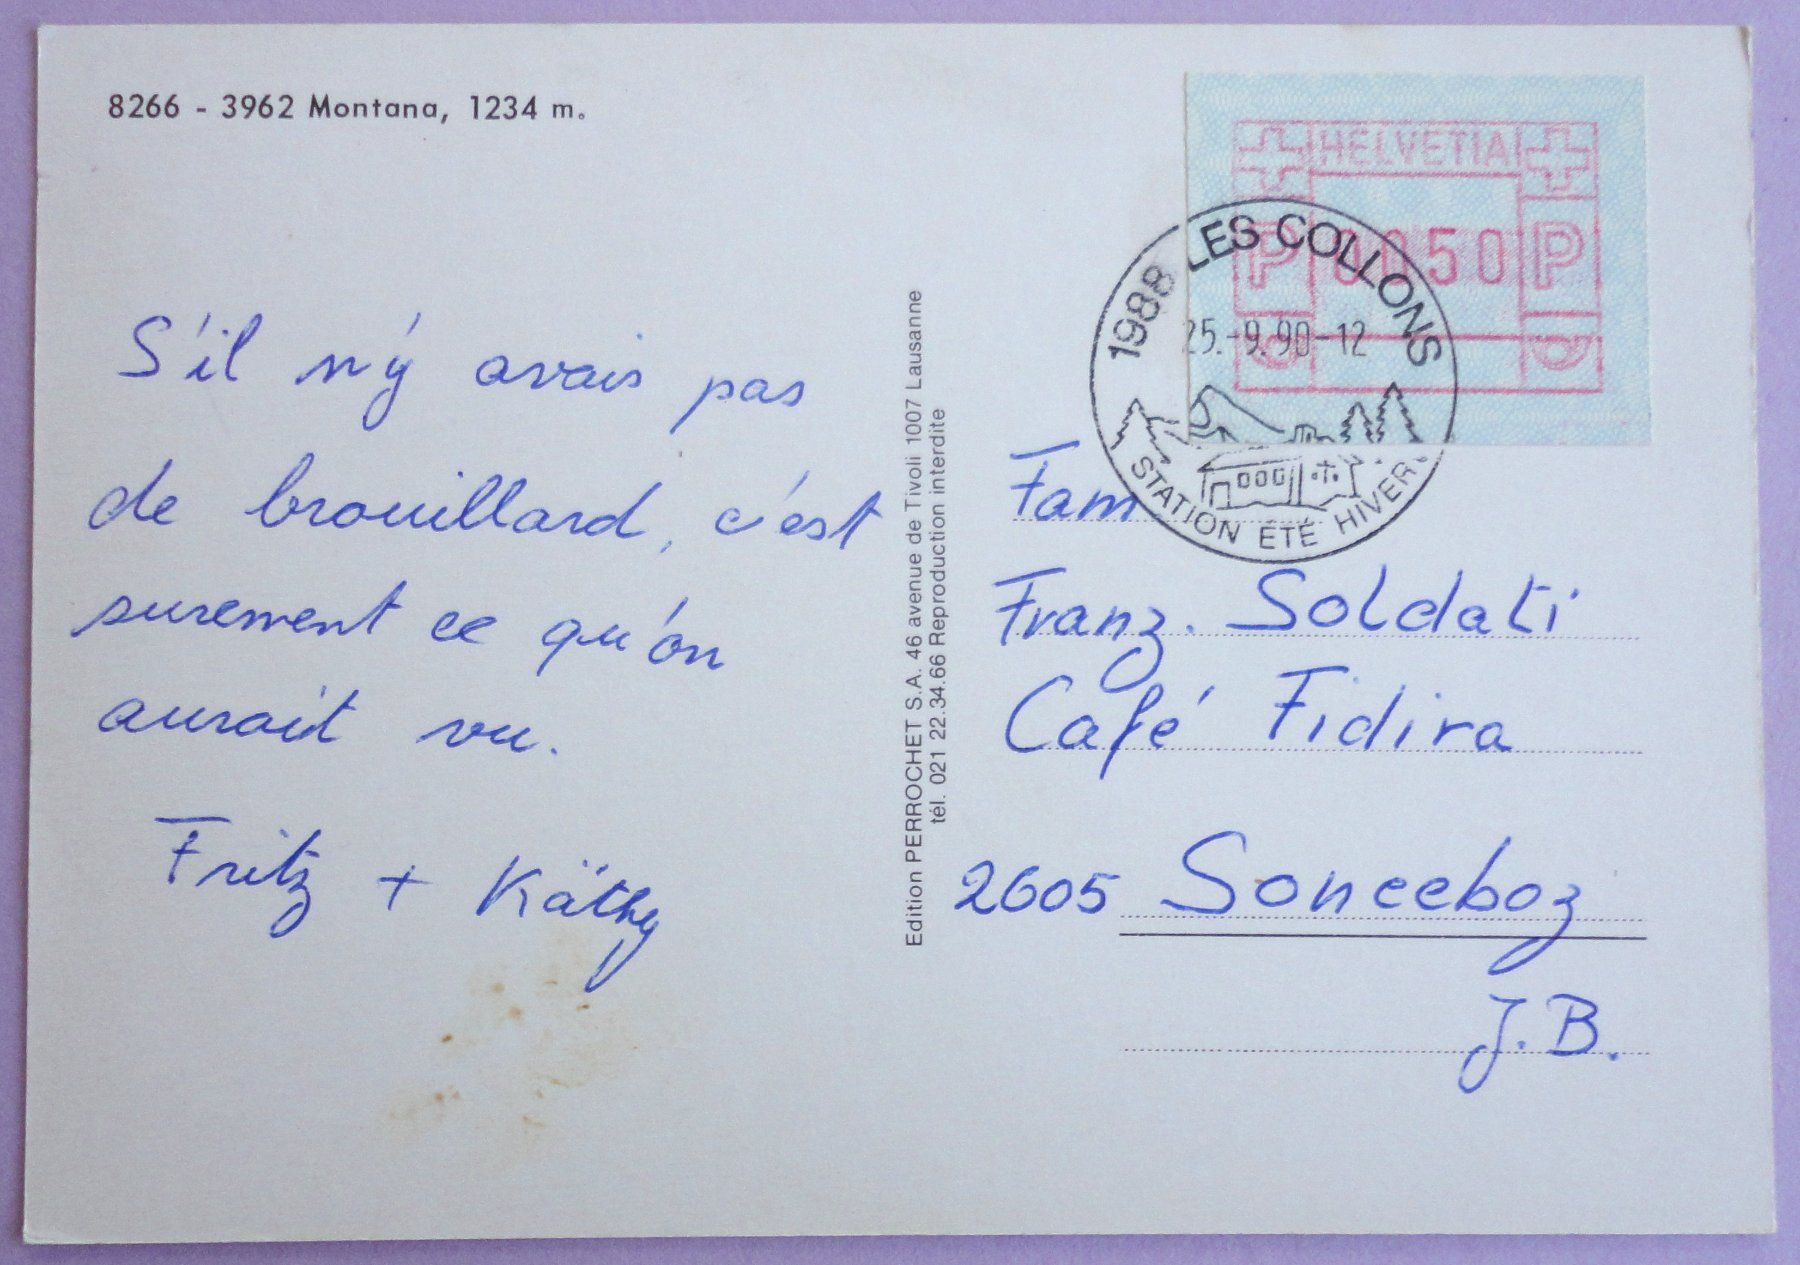 8266 - 3962 Montana, 1234 m.
S'il n'y avais pas
de brouillard, c'est
surement ce qu'on
aurait vu.
Fritz + Käthy
Edition PERROCHET S.A. 46 avenue de Tivoli 1007 Lausanne
tél. 021 22.34.66 Reproduction interdite
HELVETIA
P 0050 P
1988 LES COLLONS
25.-9.90-12
STATION ÉTÉ HIVER
Fam
Franz. Soldati
Café Fidira
2605 Sonceboz
J.B.